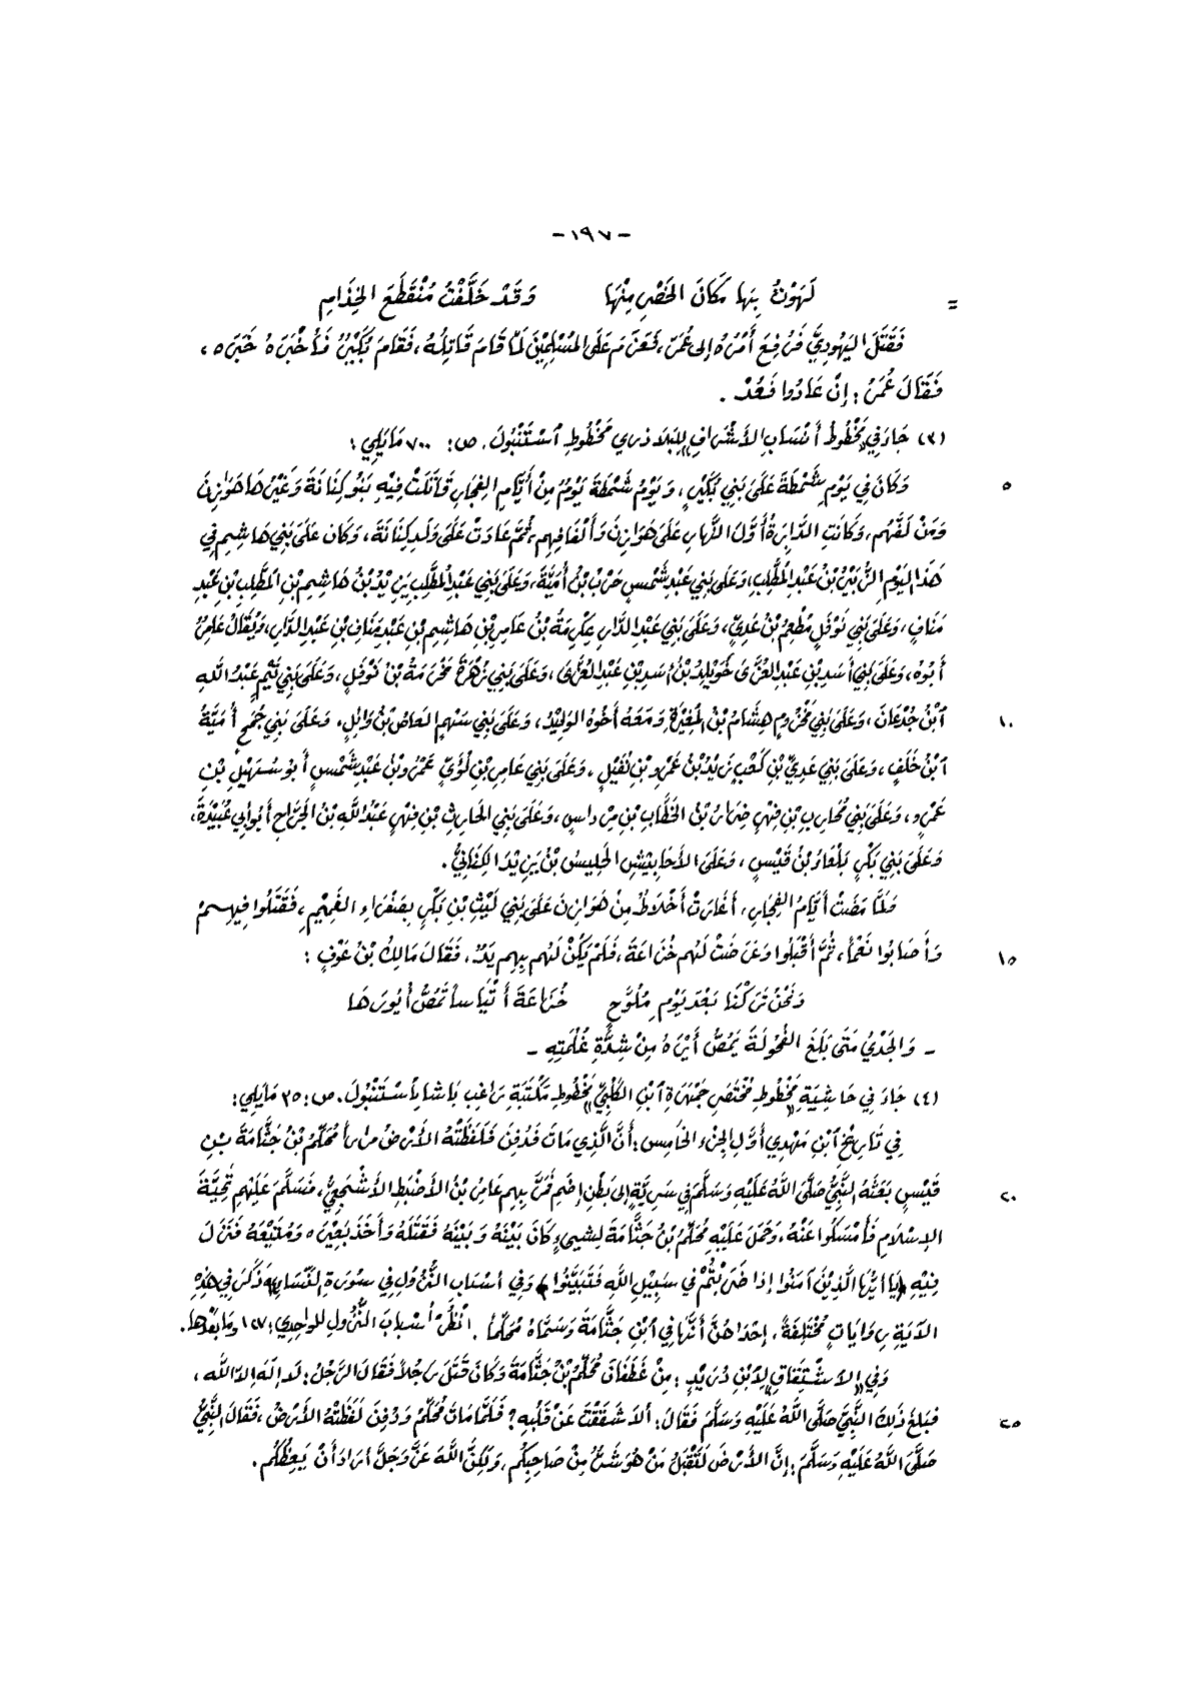 -١٩٧-
= لَهَوْتُ بِهَا مَكَانَ الخَصْرِ مِنْهَا وَقَدْ خَلَّفْتُ مُنْقَطَعَ الخِذَامِ
فَقَتَلَ اليَهُودِيَّ فَرُفِعَ أَمْرُهُ إلى عُمَرَ، فَعَزَمَ عَلَى المُسْلِمِيْنَ لَمَّا قَامَ قَاتِلُهُ، فَقَامَ بُكَيْرٌ فَأَخْبَرَهُ خَبَرَه،
فَقَالَ عُمَرُ: إنْ عَادُوا فَعُدْ.
(٣) جَاءَ فِي مَخْطُوطِ أَنْسَابِ الأَشْرَافِ لِلبَلاَذرِي مَخْطُوطِ ٱسْتَنْبُولَ. ص: ٧٠٠ مَايَلِي:
٥ وَكَانَ فِي يَوْمِ شَمْطَةَ عَلَى بَنِي بُكَيْرٍ، وَيَوْمُ شَمْطَةَ يَوْمٌ مِنْ أَيَّامِ الفِجَارِ قَاتَلَتْ فِيْهِ بَنُو كِنَانَةَ وَغَيْرُهَا هَوَازِنَ
وَمَنْ لَفَّهُم، وَكَانَتِ الدَّابِرَةُ أَوَّلَ النَّهَارِ عَلَى هَوَازِنَ وَأَلْفَافِهِم، ثُمَّ عَادَتْ عَلَى وَلَدِ كِنَانَةَ، وَكَان عَلَى بَنِي هَاشِمٍ فِي
هَذَا اليَوْمِ الزُّبَيْرُ بْنُ عَبْدِ المُطَّلِبِ، وَعَلَى بَنِي عَبْدِ شَمْسٍ حَرْبُ بْنُ أُمَيَّةَ، وَعَلَى بَنِي عَبْدِ المُطَّلِبِ يَزِيْدُ بْنُ هَاشِمِ بْنِ المُطَّلِبِ بْنِ عَبْدِ
مَنَافٍ، وَعَلَى بَنِي نَوْفَلٍ مُطْعِمُ بْنُ عَدِيٍّ، وَعَلَى بَنِي عَبْدِ الدَّارِ عِكْرِمَةُ بْنُ عَامِرِ بْنِ هَاشِمِ بْنِ عَبْدِ مَنَافِ بْنِ عَبْدِ الدَّارِ، وَيُقَالُ عَامِرٌ
أَبُوهُ، وَعَلَى بَنِي أَسَدِ بْنِ عَبْدِ العُزَّى خُوَيْلِدُ بْنُ أَسَدِ بْنِ عَبْدِ العُزَّى، وَعَلَى بَنِي زُهْرَةَ مَخْرَمَةُ بْنُ نَوْفَلٍ، وَعَلَى بَنِي تَيْمٍ عَبْدُ اللهِ
١٠ ٱبْنُ جُدْعَانَ، وَعَلَى بَنِي مَخْزُومٍ هِشَامُ بْنُ المُغِيْرَةِ وَمَعَهُ أَخُوهُ الوَلِيْدُ، وَعَلَى بَنِي سَهْمٍ العَاصُ بْنُ وَائِلٍ، وَعَلَى بَنِي جُمَحٍ أُمَيَّةُ
ٱبْنُ خَلَفٍ، وَعَلَى بَنِي عَدِيِّ بْنِ كَعْبٍ زَيْدُ بْنُ عَمْرِو بْنِ نُفَيْلٍ، وَعَلَى بَنِي عَامِرِ بْنِ لُؤَيٍّ عَمْرُو بْنُ عَبْدِ شَمْسٍ أَبُو سُهَيْلِ بْنِ
عَمْرٍو، وَعَلَى بَنِي مُحَارِبِ بْنِ فِهْرٍ ضِرَارُ بْنُ الخَطَّابِ بْنِ مِرْدَاسٍ، وَعَلَى بَنِي الحَارِثِ بْنِ فِهْرٍ عَبْدُ اللهِ بْنُ الجَرَّاحِ أَبُو أَبِي عُبَيْدَةَ،
وَعَلَى بَنِي بَكْرٍ بَلْعَاءُ بْنُ قَيْسٍ، وَعَلَى الأَحَابِيْشِ الحُلَيسُ بْنُ يَزِيْدَ الكِنَانِيُّ.
فَلَمَّا مَضَتْ أَيَّامُ الفِجَارِ، أَغَارَتْ أَخْلاَطٌ مِنْ هَوَازِنَ عَلَى بَنِي لَيْثِ بْنِ بَكْرٍ بِصَفْرَاءِ الغَمِيْمِ، فَقَتَلُوا فِيهِمْ
١٥ وَأَصَابُوا نَعَمًا، ثُمَّ أَقْبَلُوا وَعَرَضَتْ لَهُم خُزَاعَةَ، فَلَمْ يَكُنْ لَهُم بِهِم يَدٌ، فَقَالَ مَالِكُ بْنُ عَوْفٍ:
وَنَحْنُ تَرَكْنَا بَعْدَ يَوْمِ مُلَوَّحٍ خُزَاعَةَ أَتْيَاساً تَمُصُّ أُيُورَهَا
- وَالجَدْيُ مَتَى بَلَغَ الفُحُولَةَ يَمُصُّ أَيْرَهُ مِنْ شِدَّةِ غُلْمَتِهِ -
(٤) جَاءَ فِي حَاشِيَةِ مَخْطُوطِ مُخْتَصَرِ جَمْهَرَةِ ٱبْنِ الكَلْبِيِّ مَخْطُوطِ مَكْتَبَةِ رَاغِب بَاشَا بِٱسْتَنْبُولَ. ص: ٣٥ مَايَلِي:
فِي تَارِيْخِ ٱبْنِ مَهْدِي أَوَّلِ الجُزْءِ الخَامِسِ: أَنَّ الَّذِي مَاتَ فَدُفِنَ فَلَفَظَتْهُ الأَرْضُ مِرَاراً مُحَلِّمُ بْنُ جَثَّامَةَ بْنِ
٢٠ قَيْسٍ بَعَثَهُ النَّبِيُّ صَلَّى اللهُ عَلَيْهِ وَسَلَّمَ فِي سَرِيَّةٍ إلى بَطْنِ إِضَمٍ فَمَرَّ بِهِم عَامِرُ بْنُ الأَضْبَطِ الأَشْجَعِيُّ، فَسَلَّمَ عَلَيْهِم تَحِيَّةَ
الإسْلاَمِ فَأَمْسَكُوا عَنْهُ، وَحَمَلَ عَلَيْهِ مُحَلِّمُ بْنُ جَثَّامَةَ لِشَيىءٍ كَانَ بَيْنَهُ وَبَيْنَهُ فَقَتَلَهُ وَأَخَذَ بَعِيْرَه وَمُتَيْعَهُ فَنَزَلَ
فِيْهِ ﴿يَا أَيُّهَا الَّذِيْنَ آمَنُوا إذَا ضَرَبْتُمْ فِي سَبِيْلِ اللهِ فَتَبَيَّنُوا﴾ وَفِي أَسْبَابِ النُّزُولِ فِي سُوْرَةِ النِّسَاءِ ذَكَرَ فِي هَذِهِ
الآيَةِ رِوَايَاتٍ مُخْتَلِفَةً، إحْدَاهُنَّ أَنَّهَا فِي ٱبْنِ جَثَّامَةَ وَسَمَّاهُ مُحَلِّماً. ٱنْظُرْ أَسْبَابَ النُّزُولِ لِلوَاحِدِي: ١٢٧ وَمَا بَعْدَهَا.
وَفِي الاِشْتِقَاقِ لاِبْنِ دُرَيْدٍ: مِنْ غَطَفَانَ مُحَلِّمُ بْنُ جَثَّامَةَ وَكَانَ قَتَلَ رَجُلاً فَقَالَ الرَّجُلُ: لاَ إلَهَ إلاَّ اللهُ،
٢٥ فَبَلَغَ ذَلِكَ النَّبِيَّ صَلَّى اللهُ عَلَيْهِ وَسَلَّمَ فَقَالَ: أَلاَ شَقَقْتَ عَنْ قَلْبِهِ؟ فَلَمَّا مَاتَ مُحَلِّمٌ وَدُفِنَ لَفَظَتْهُ الأَرْضُ، فَقَالَ النَّبِيُّ
صَلَّى اللهُ عَلَيْهِ وَسَلَّمَ: إنَّ الأَرْضَ لَتَقْبَلُ مَنْ هُوَ شَرٌّ مِنْ صَاحِبِكُم، وَلَكِنَّ اللهَ عَزَّ وَجَلَّ أَرَادَ أَنْ يَعِظَكُم.